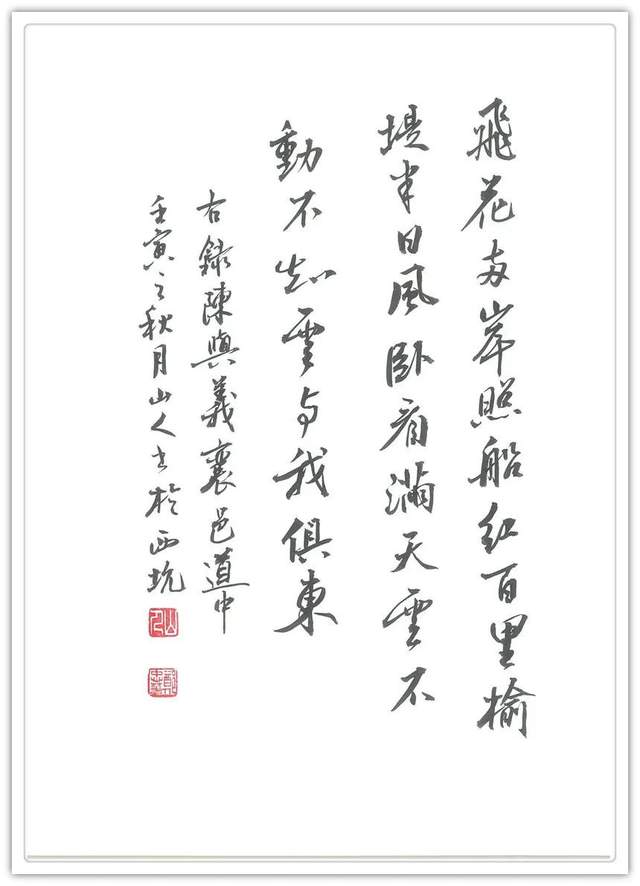 飛花两岸照船紅百里榆
堤半日風卧看滿天雲不
動不知雲与我俱東
右錄陳與義襄邑道中
壬寅之秋月山人书於西坑
山人